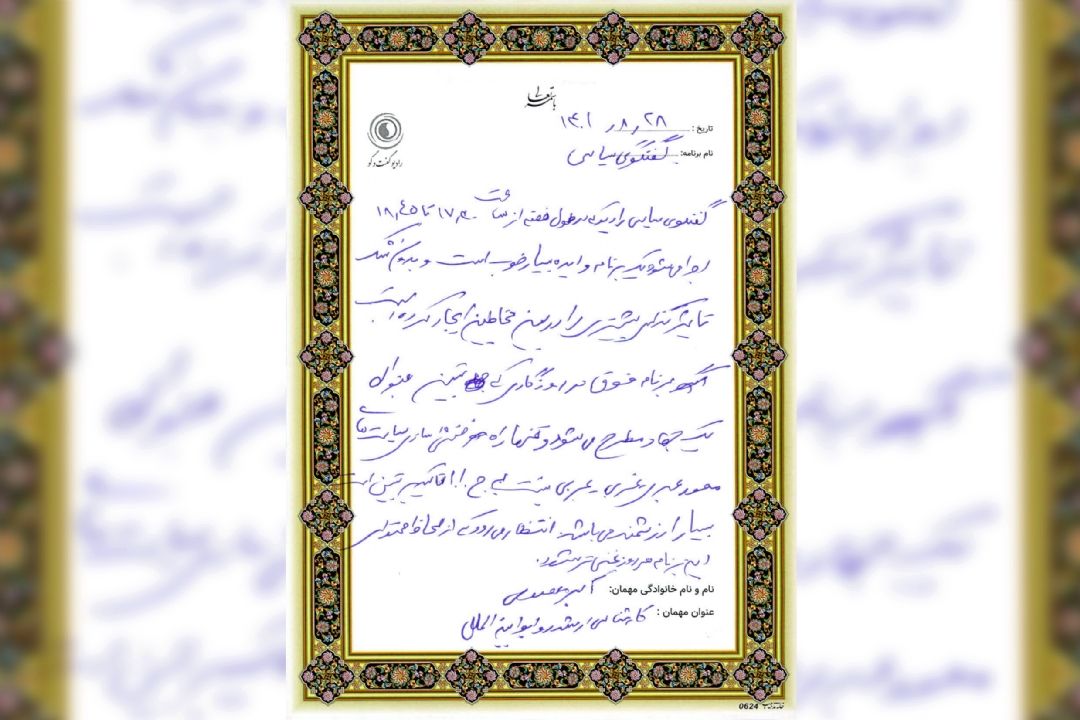 باسمه تعالی
رادیو گفت و گو
تاریخ: ۱۴۰۱/۸/۲۸
نام برنامه: گفتگوی سیاسی
گفتگوی سیاسی رادیو که در طول هفته از ساعت ۱۷٫۳۰ تا ۱۸٫۴۵
اجرا میشود یک برنامه و ایده بسیار خوب است و بدون شک
تاثیرگذاری بیشتری را در بین مخاطبین ایجاد کرده است
برنامه فوق در روزگاری که تبیین بعنوان
یک جهاد مطرح می‌شود و تنها راه خنثی سازی سیاست‌های
عبری غربی عربی تبیین است
بسیار ارزشمند می‌باشد. انتظار می‌رود که از لحاظ محتوای
این برنامه هر روز غنی‌تر بشود.
نام و نام خانوادگی مهمان: اکبر معصومی
عنوان مهمان: کارشناس ارشد روابط بین الملل
0624